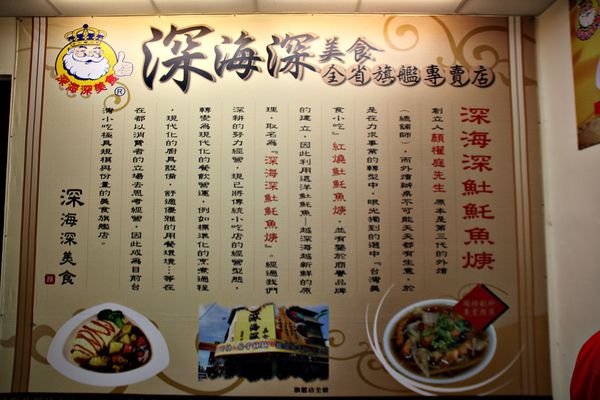 深海深美食
®
深海深美食
全省旗艦專賣店
深海深𩵚魠魚焿
創立人顏權庭先生，原本是第三代的外燴
（總鋪師），而外燴辦桌不可能天天都有生意，於
是在力求事業的轉型中，眼光獨到的選中『台灣美
食小吃』紅燒𩵚魠魚焿，並有鑒於商譽品牌
的建立，因此利用遠洋𩵚魠魚—越深海越新鮮的原
理，取名為『深海深𩵚魠魚焿』。經過我們
深耕的努力經營，現已將傳統小吃店的經營型態
轉變為現代化的餐飲營運，例如標準化的烹煮過程
，現代化的廚具設備，舒適優雅的用餐環境…等在
在都以消費者的立場去思考經營，因此成為目前台
灣小吃極具規模與份量的美食旗艦店。
深海深美食
深海深
旗艦店全貌